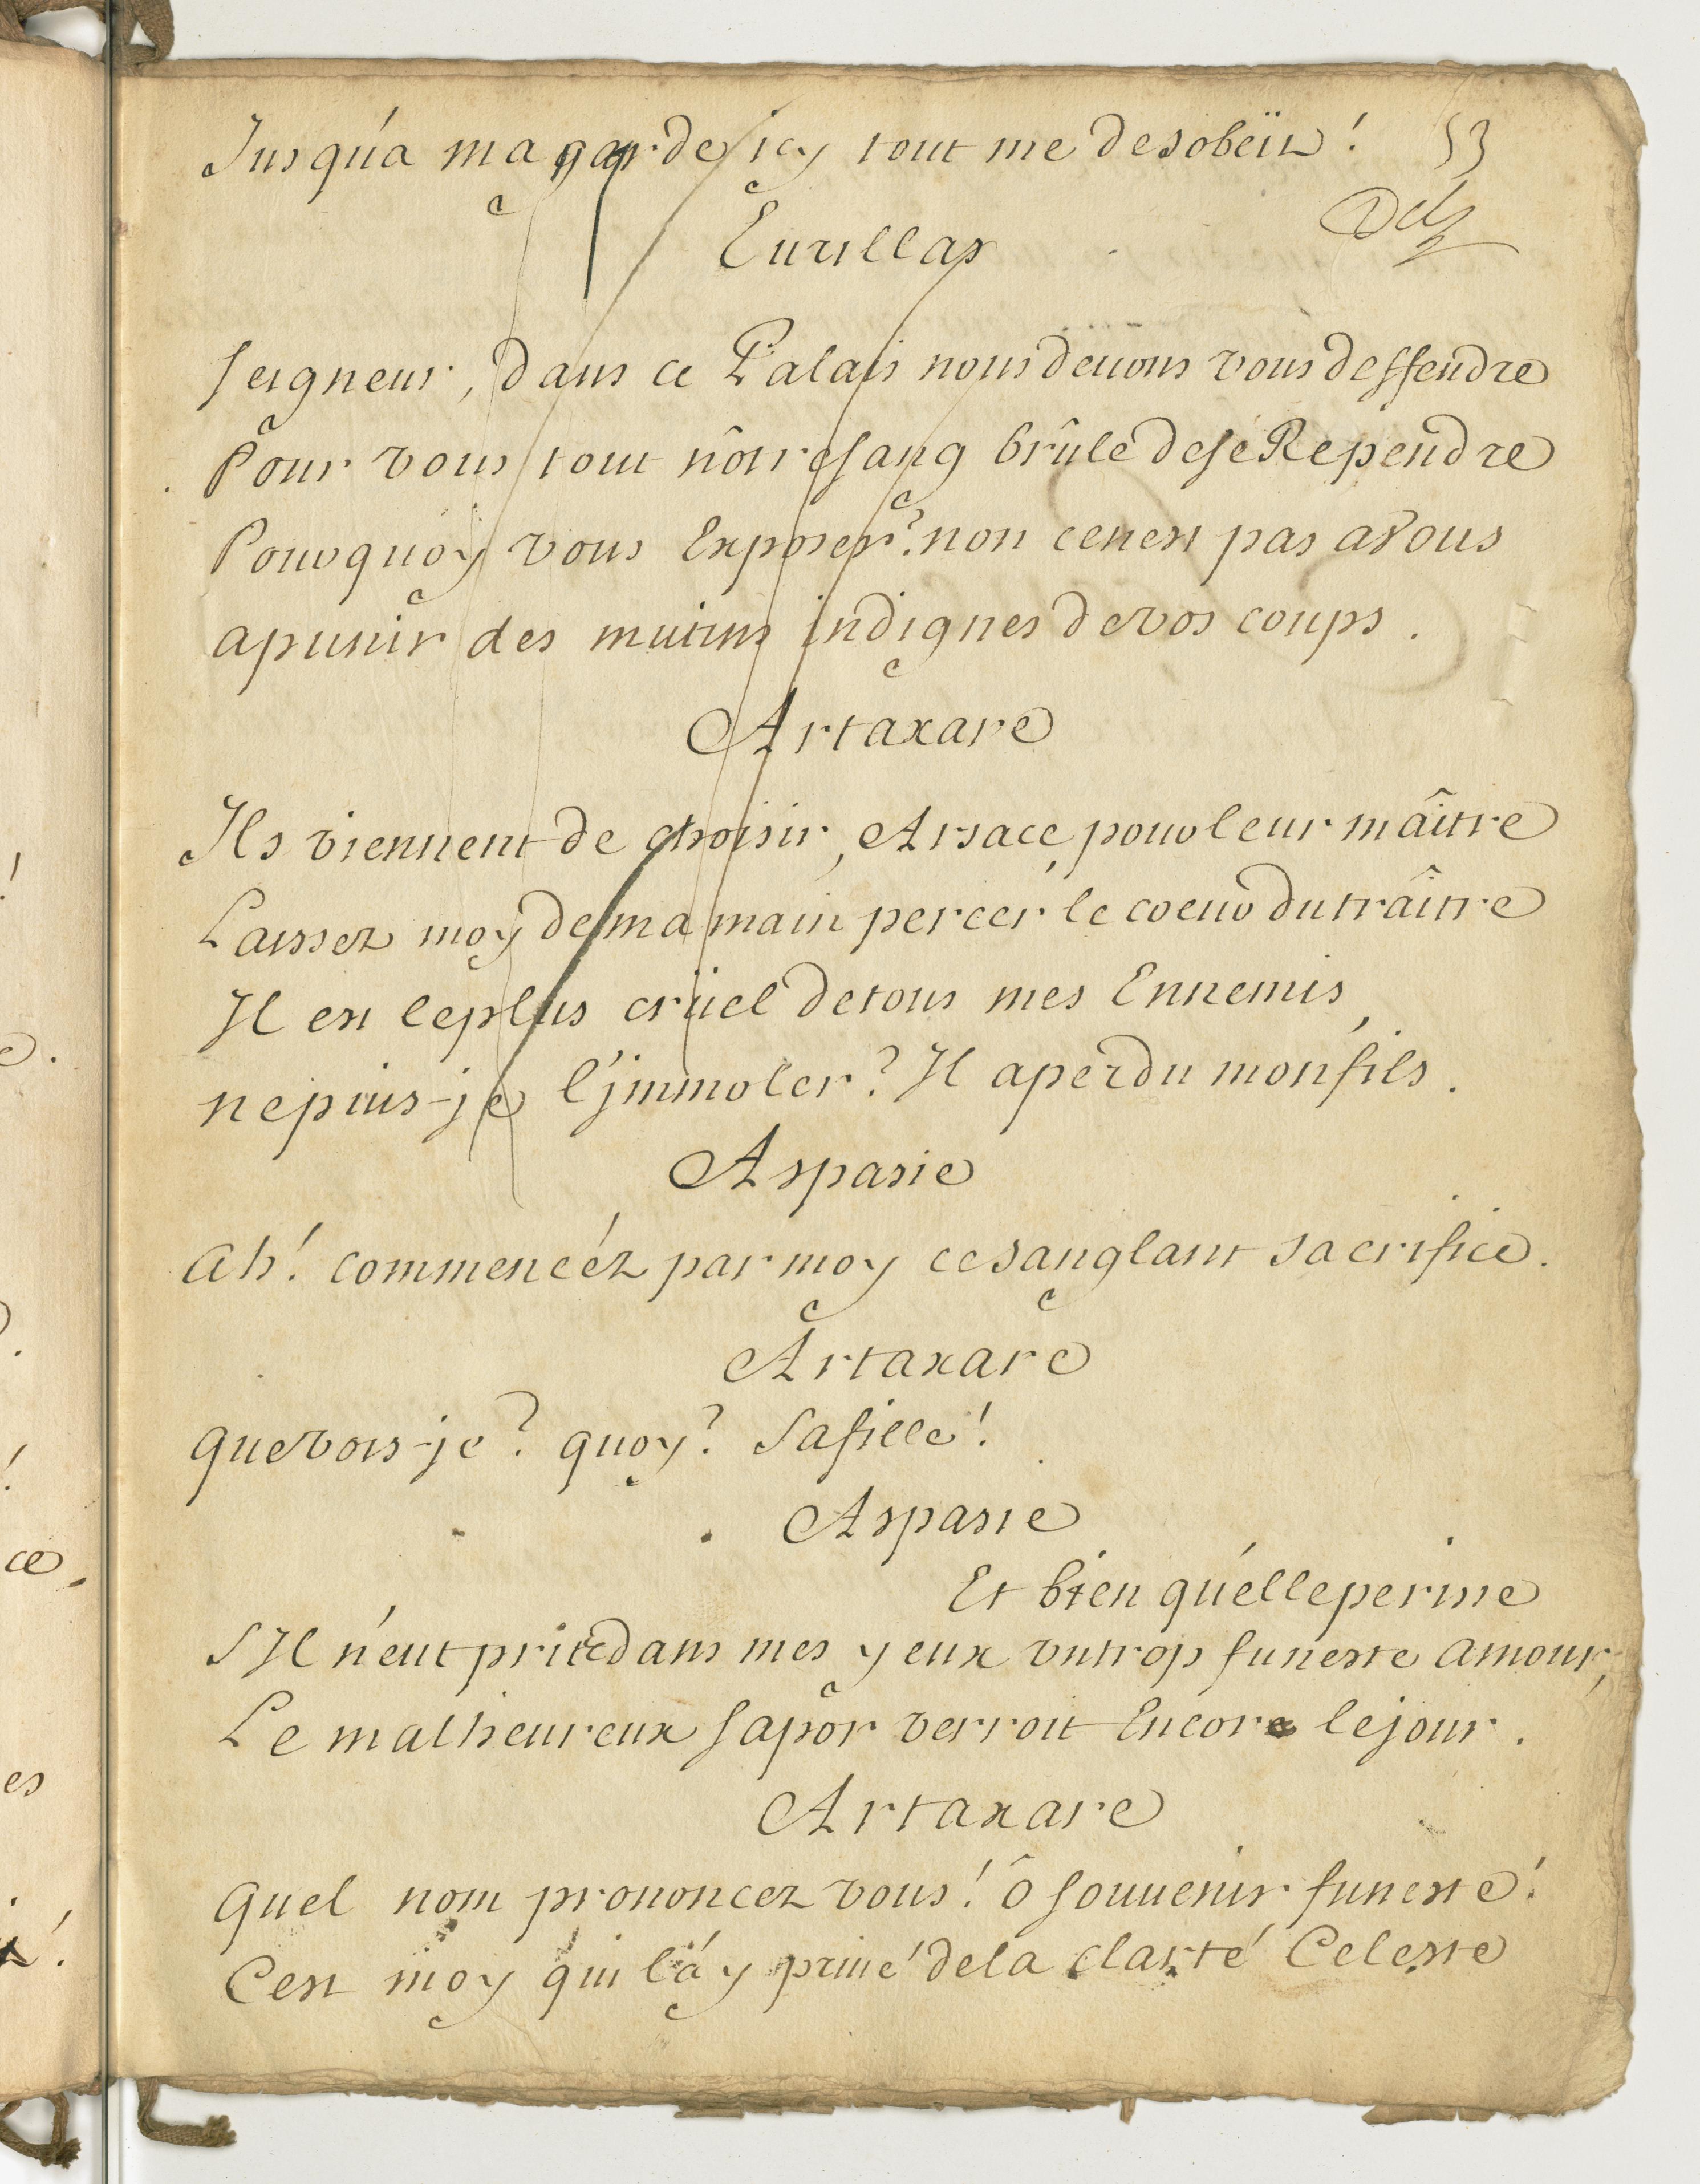 Jusqu'a ma garde icy tout me desobëit! 53
Eurillas
seigneur, dans ce Palais nous deuons vous deffendre
Pour vous tout nôtre sang brûle de se Rependre
Pourquoy vous Exposer? non ce nest pas a vous
a punir des mutins indignes de vos coups.
Artaxare
Ils viennent de choisir, Arsace, pour leur maître
Laissez moy de ma main percer le coeur du traître
Il est le plus crüel de tous mes Ennemis,
ne puis-je l'jmmoler? Il a perdu mon fils.
Aspasie
ah! commencéz par moy ce sanglant sacrifice.
Artaxare
que vois-je? quoy? sa fille!
Aspasie
Et bien qu'elle perisse
s'Il n'eut prit dans mes yeux un trop funeste amour,
Le malheureux sapor verroit Encore le jour.
Artaxare
quel nom prononcez vous! ô souuenir funeste!
Cest moy qui l'ay priué de la clarté Celeste